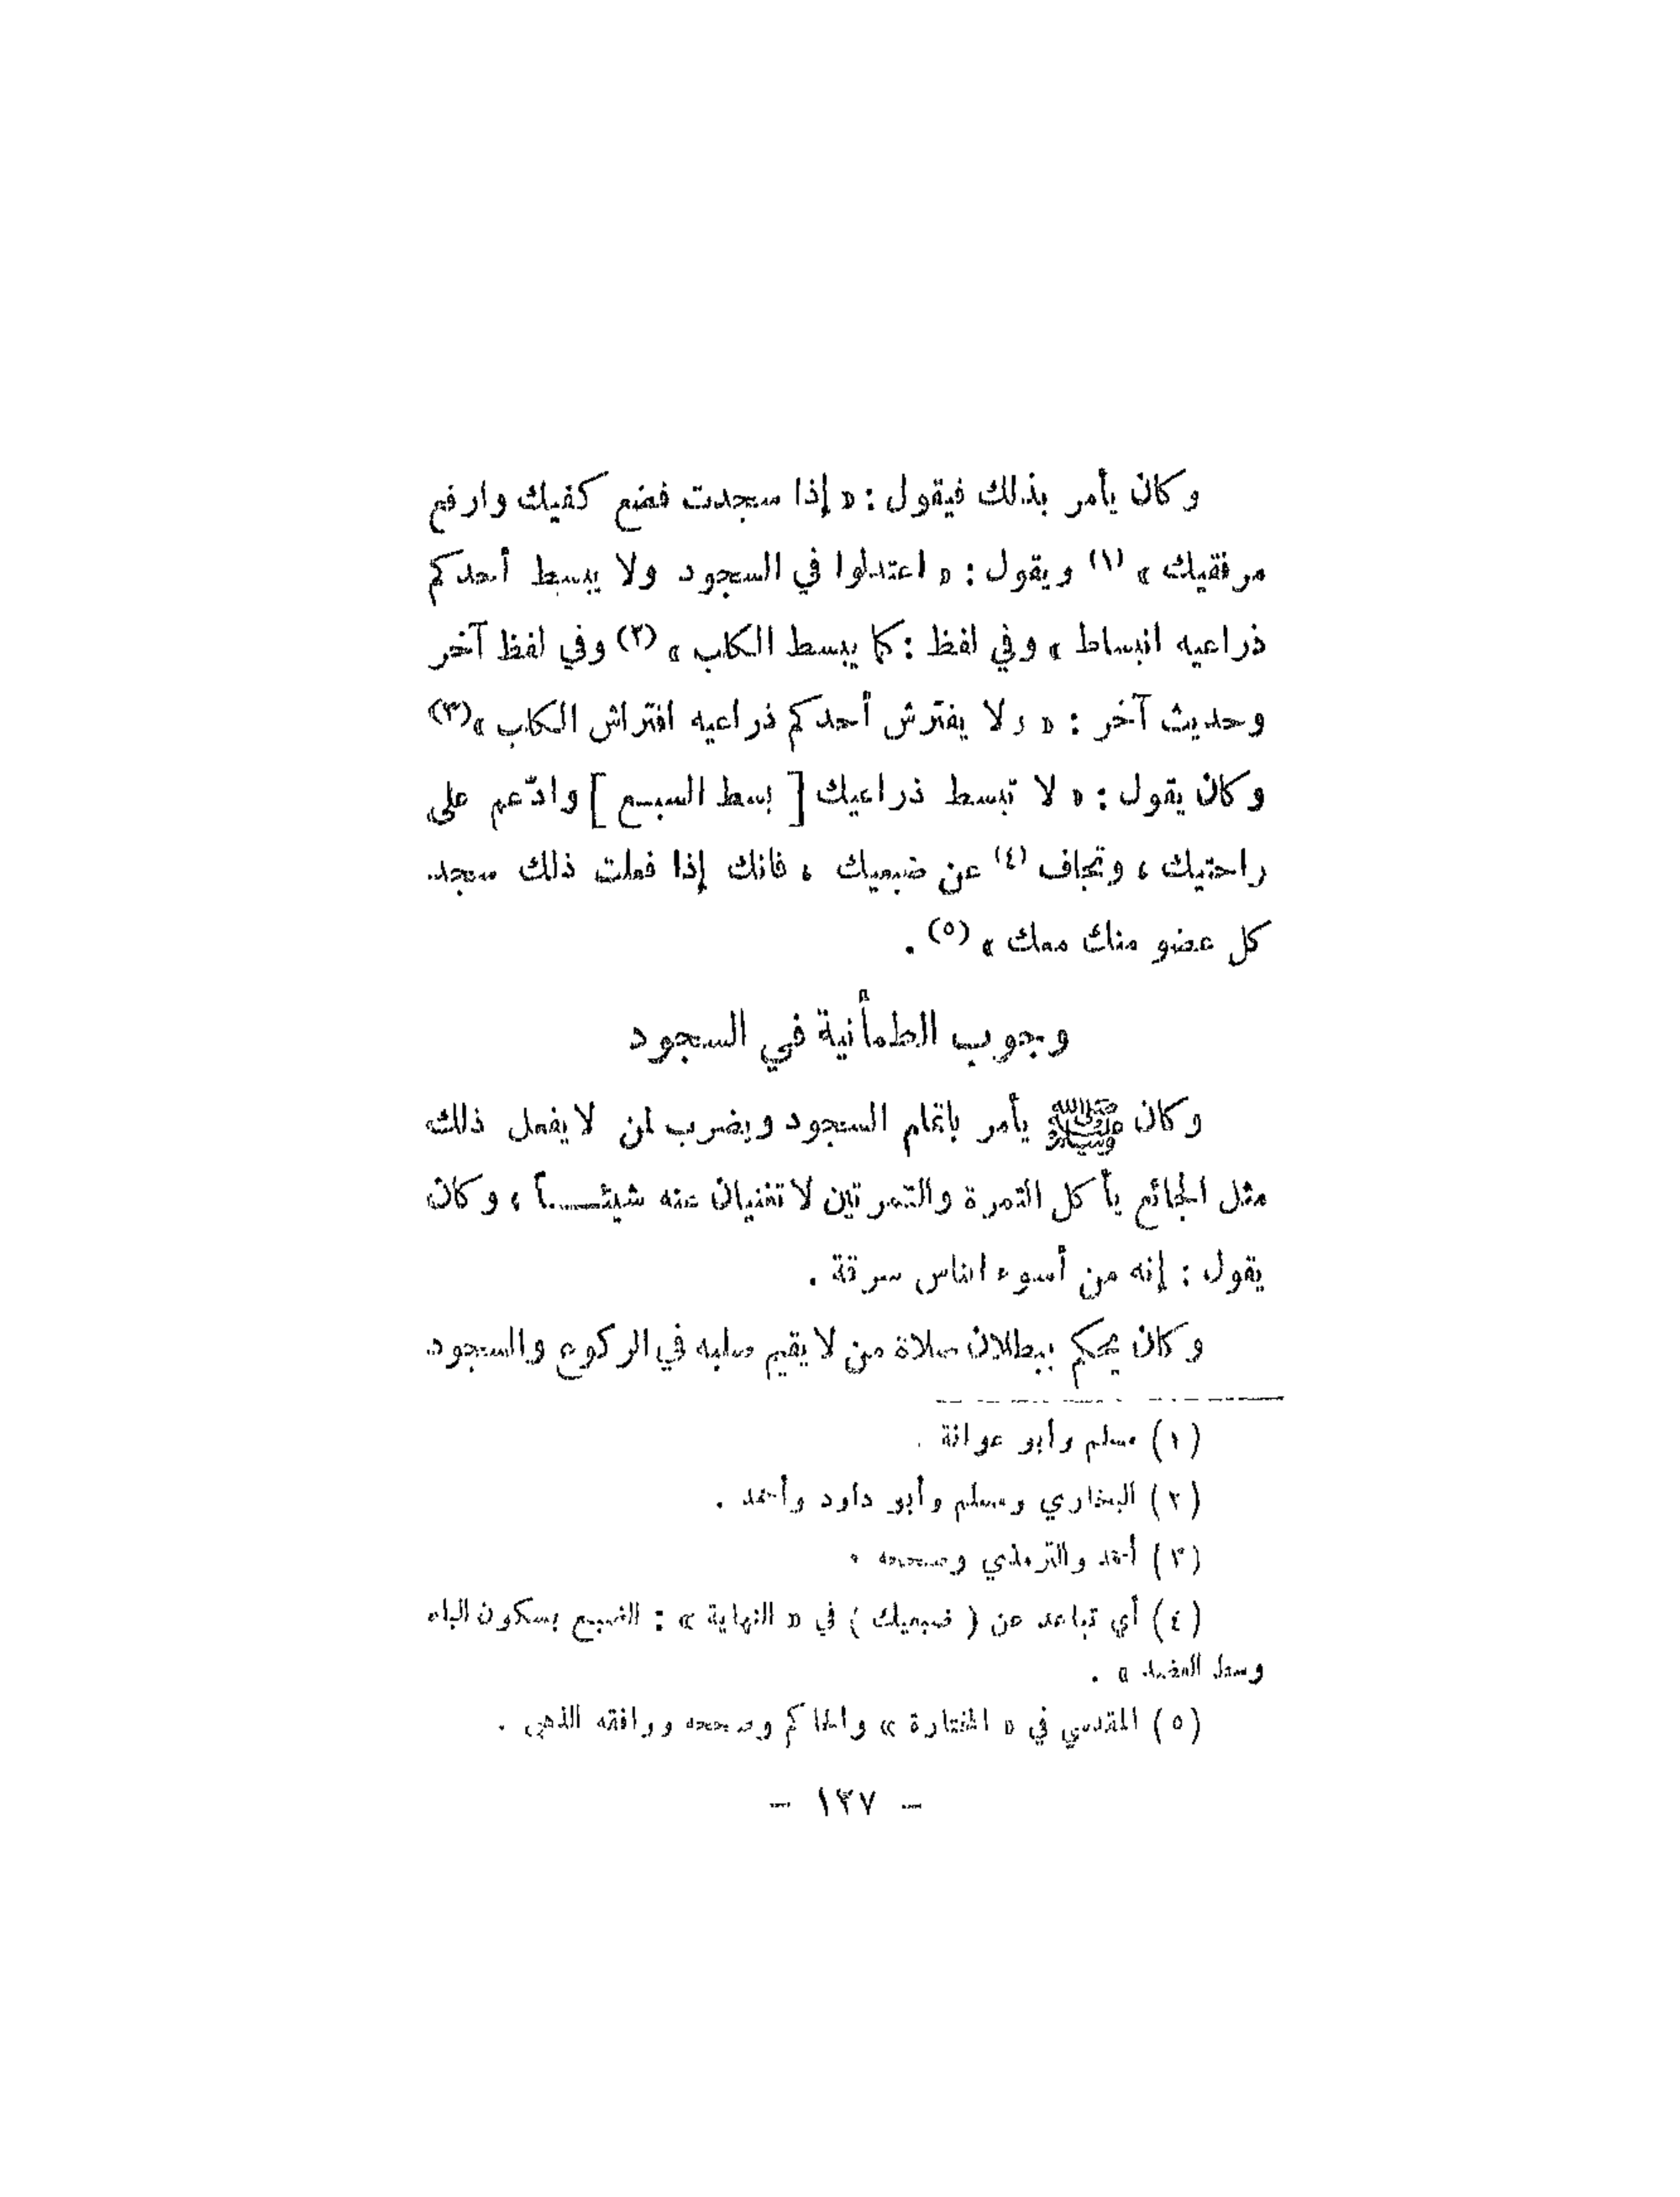 وكان يأمر بذلك فيقول : « إذا سجدت فضع كفيك وارفع
مرفقيك » (١) ويقول : « اعتدلوا في السجود ولا يبسط أحدكم
ذراعيه انبساط » وفي لفظ : كما يبسط الكلب » (٢) وفي لفظ آخر
وحديث آخر : « ولا يفترش أحدكم ذراعيه افتراش الكلب »(٣)
وكان يقول : « لا تبسط ذراعيك [ بسط السبع ] وادّعم على
راحتيك ، وتجاف (٤) عن ضبعيك ، فانك إذا فعلت ذلك سجد
كل عضو منك معك » (٥) .
وجوب الطمأنية في السجود
وكان ﷺ يأمر باتمام السجود ويضرب لمن لا يفعل ذلك
مثل الجائع يأكل التمرة والتمرتين لا تغنيان عنه شيئـــاً ، وكان
يقول : إنه من أسوء الناس سرقة .
وكان يحكم ببطلان صلاة من لا يقيم صلبه في الركوع والسجود
(١) مسلم وأبو عوانة .
(٢) البخاري ومسلم وأبو داود وأحمد .
(٣) أحمد والترمذي وصححه .
(٤) أي تباعد عن ( ضبعيك ) في « النهاية » : الضبع بسكون الباء
وسط العضد » .
(٥) المقدسي في « المختارة » والحاكم وصححه ووافقه الذهبي .
– ١٣٧ –